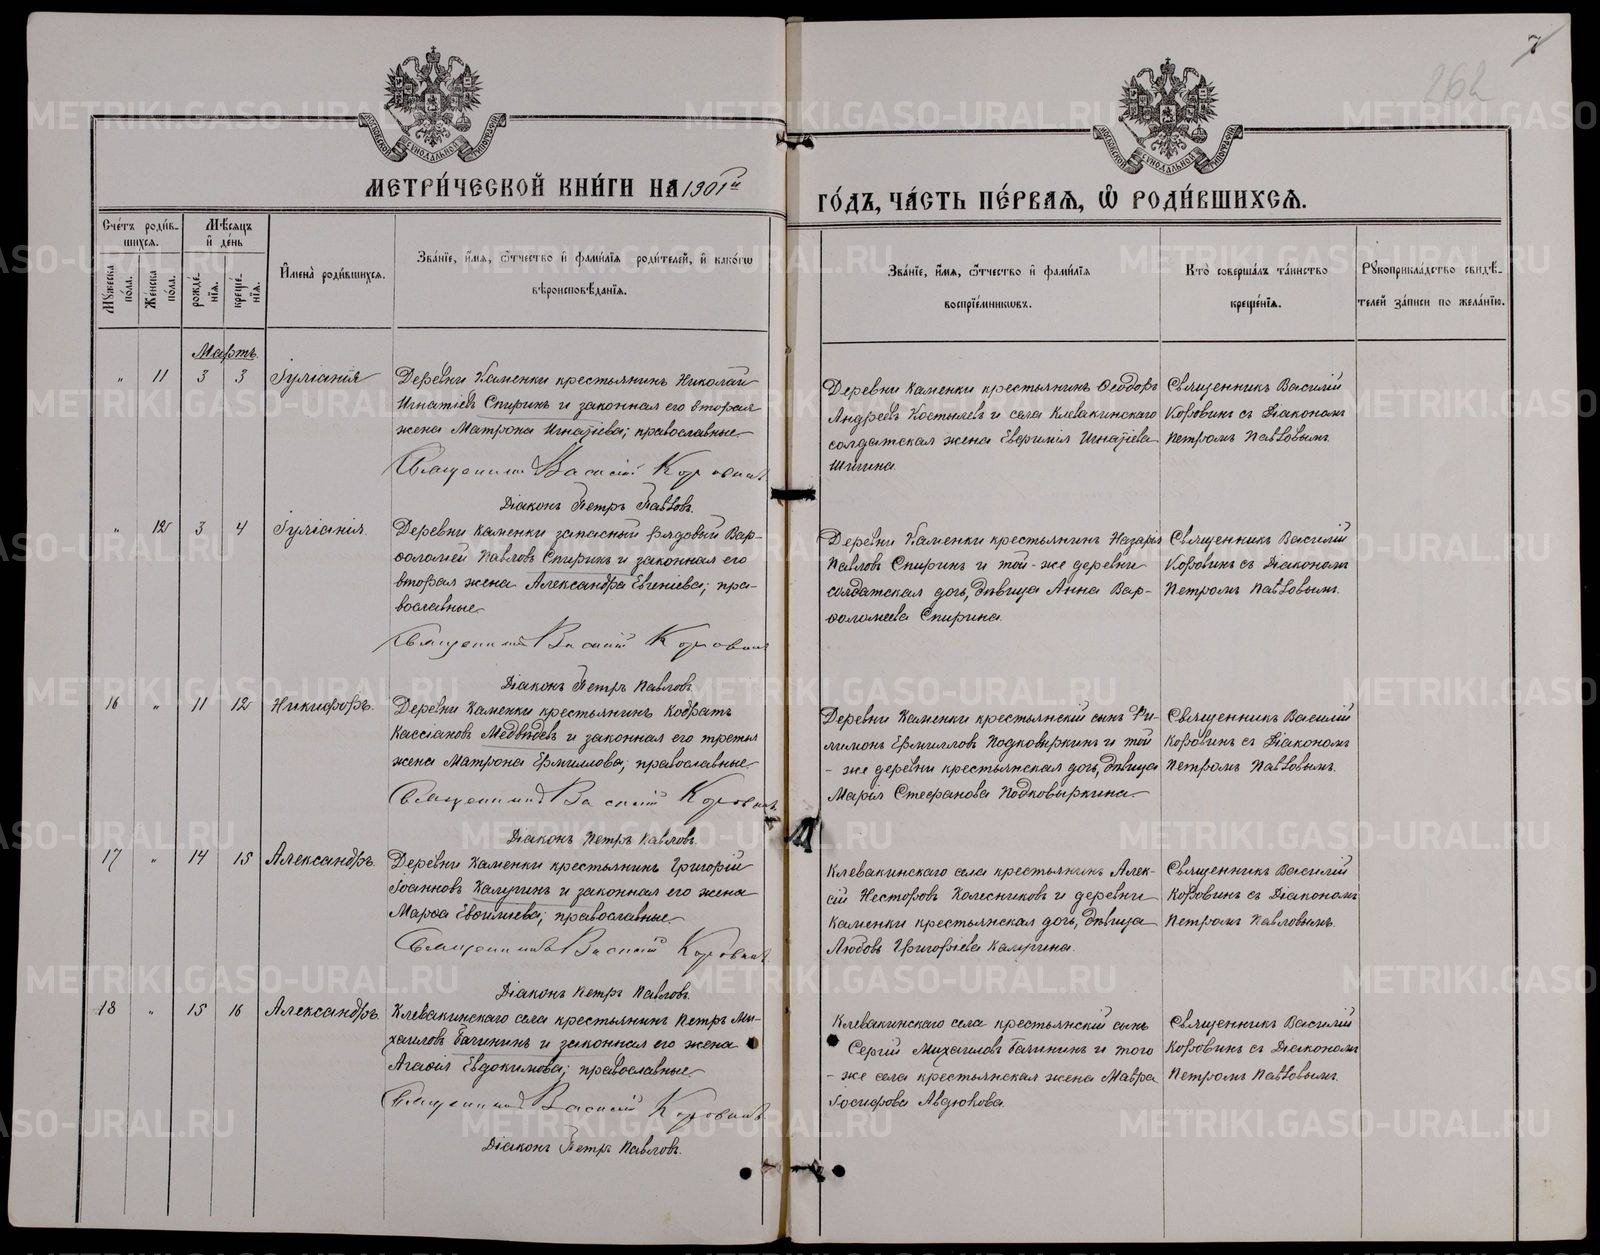 7
262
МЕТРИ́ЧЕСКОЙ КНИ́ГИ НА 1901й
ГО́ДЪ, ЧА́СТЬ ПЕ́РВАЯ, Ѡ҆ РОДИ́ВШИХСЯ.
Сче́тъ роди́в-
шихся.
Мѣ́сяцъ
и҆ де́нь
Мꙋ́жеска по́ла.
Же́нска по́ла.
рожде́-
нїя.
креще́-
нїя.
И҆мена̀ роди́вшихся.
Зва́нїе, и҆́мя, ѻ҆́тчество и҆ фами́лїя роди́телей, и҆ како́гѡ
вѣроисповѣ́данїя.
Зва́нїе, и҆́мя, ѻ҆́тчество и҆ фами́лїя
воспрїе́мникѡвъ.
Кто̀ соверша́лъ та́инство
креще́нїя.
Рꙋкоприкла́дство свидѣ́-
телей за́писи по жела́нїю.
Мартъ.
" 11 3 3 Іуліанія
Деревни Каменки крестьянинъ Николай
Игнатіевъ Спиринъ и законная его вторая
жена Матрона Игнатіева; православные
Священникъ Василій Коровинъ
Діаконъ Петръ Павловъ.
Деревни Каменки крестьянинъ Ѳеодоръ
Андреевъ Костылевъ и села Клевакинскаго
солдатская жена Евфимія Игнатіева
Шигина.
Священникъ Василій
Коровинъ съ Діакономъ
Петромъ Павловымъ.
" 12 3 4 Іуліанія.
Деревни Каменки запасный рядовый Вар-
ѳоломей Павловъ Спиринъ и законная его
вторая жена Александра Евгеніева; пра-
вославные
Священникъ Василій Коровинъ
Діаконъ Петръ Павловъ.
Деревни Каменки крестьянинъ Назарій
Павловъ Спиринъ и той-же деревни
солдатская дочь, дѣвица Анна Вар-
ѳоломеева Спирина.
Священникъ Василій
Коровинъ съ Діакономъ
Петромъ Павловымъ.
16 " 11 12 Никифоръ.
Деревни Каменки крестьянинъ Кодратъ
Кассіановъ Медвѣдевъ и законная его третья
жена Матрона Ермиллова; православные
Священникъ Василій Коровинъ
Діаконъ Петръ Павловъ.
Деревни Каменки крестьянскій сынъ Фи-
лимонъ Ермилловъ Подковыркинъ и той
- же деревни крестьянская дочь, дѣвица
Марія Стефанова Подковыркина.
Священникъ Василій
Коровинъ съ Діакономъ
Петромъ Павловымъ.
17 " 14 15 Александръ.
Деревни Каменки крестьянинъ Григорій
Іоанновъ Калугинъ и законная его жена
Марѳа Евѳиміева; православные
Священникъ Василій Коровинъ
Діаконъ Петръ Павловъ.
Клевакинскаго села крестьянинъ Алек-
сій Несторовъ Колесниковъ и деревни
Каменки крестьянская дочь, дѣвица
Любовь Григорьева Калугина.
Священникъ Василій
Коровинъ съ Діакономъ
Петромъ Павловымъ.
18 " 15 16 Александръ.
Клевакинскаго села крестьянинъ Петръ Ми-
хаиловъ Бачининъ и законная его жена
Агаѳія Евдокимова; православные.
Священникъ Василій Коровинъ
Діаконъ Петръ Павловъ.
Клевакинскаго села крестьянскій сынъ
Сергій Михаиловъ Бачининъ и того
- же села крестьянская жена Мавра
Іосифова Авдюкова.
Священникъ Василій
Коровинъ съ Діакономъ
Петромъ Павловымъ.